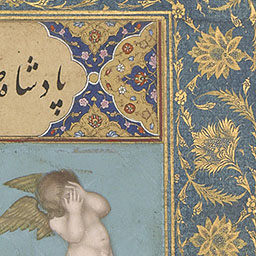 پادشاه